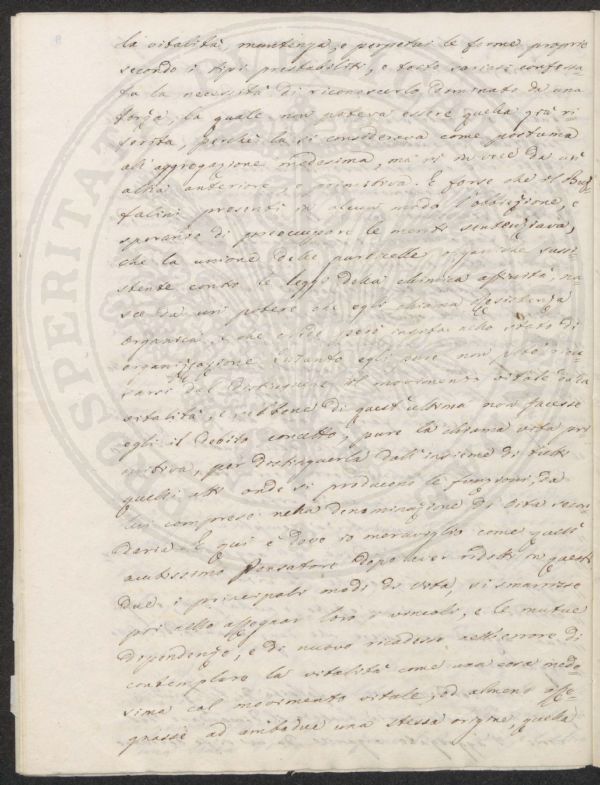 la vitalità, mantenga, e perpetui le forme proprie
secondo i tipi prestabiliti, e tosto
la necessità di riconoscerlo dominato da una
forza, la quale non poteva essere quella già ri
ferita, perchè la si considerava come postuma
all'aggregazione medesima, ma vi invece da un'
altra anteriore, e primitiva. E forse che il Buf
falini presentì in alcun modo l'obbiezione, e
sperando di preoccupare le menti sentenziava,
che la unione delle particelle organiche sussi=
stente contro le leggi della chimica affinità na=
sce da un potere che egli chiama resistenza
organica, e che perciò insita allo stato di
organizzazione. Intanto egli pure non può ricu
sarsi dal distinguere il movimento vitale dalla
vitalità, e sebbene di quest'ultima non facesse
egli il debito concetto, pure la chiama vita pri
mitiva, per distinguerla dall'insieme di tutti
quegli atti onde si producono le funzioni, da
lui compreso nella denominazione di vita secon
daria. E qui è dove io meraviglio come quest'
acutissimo Pensatore dopo aver ridotti in questi
due i principali modi di vita, si smarrisse
poi nello assegnar loro i vincoli, e le mutue
dipendenze, e di nuovo ricadesse nell'errore di
contemplare la vitalità come una cosa mede=
sima col movimento vitale, od almeno asse=
gnasse ad ambedue una stessa origine, quella
SPERITAT